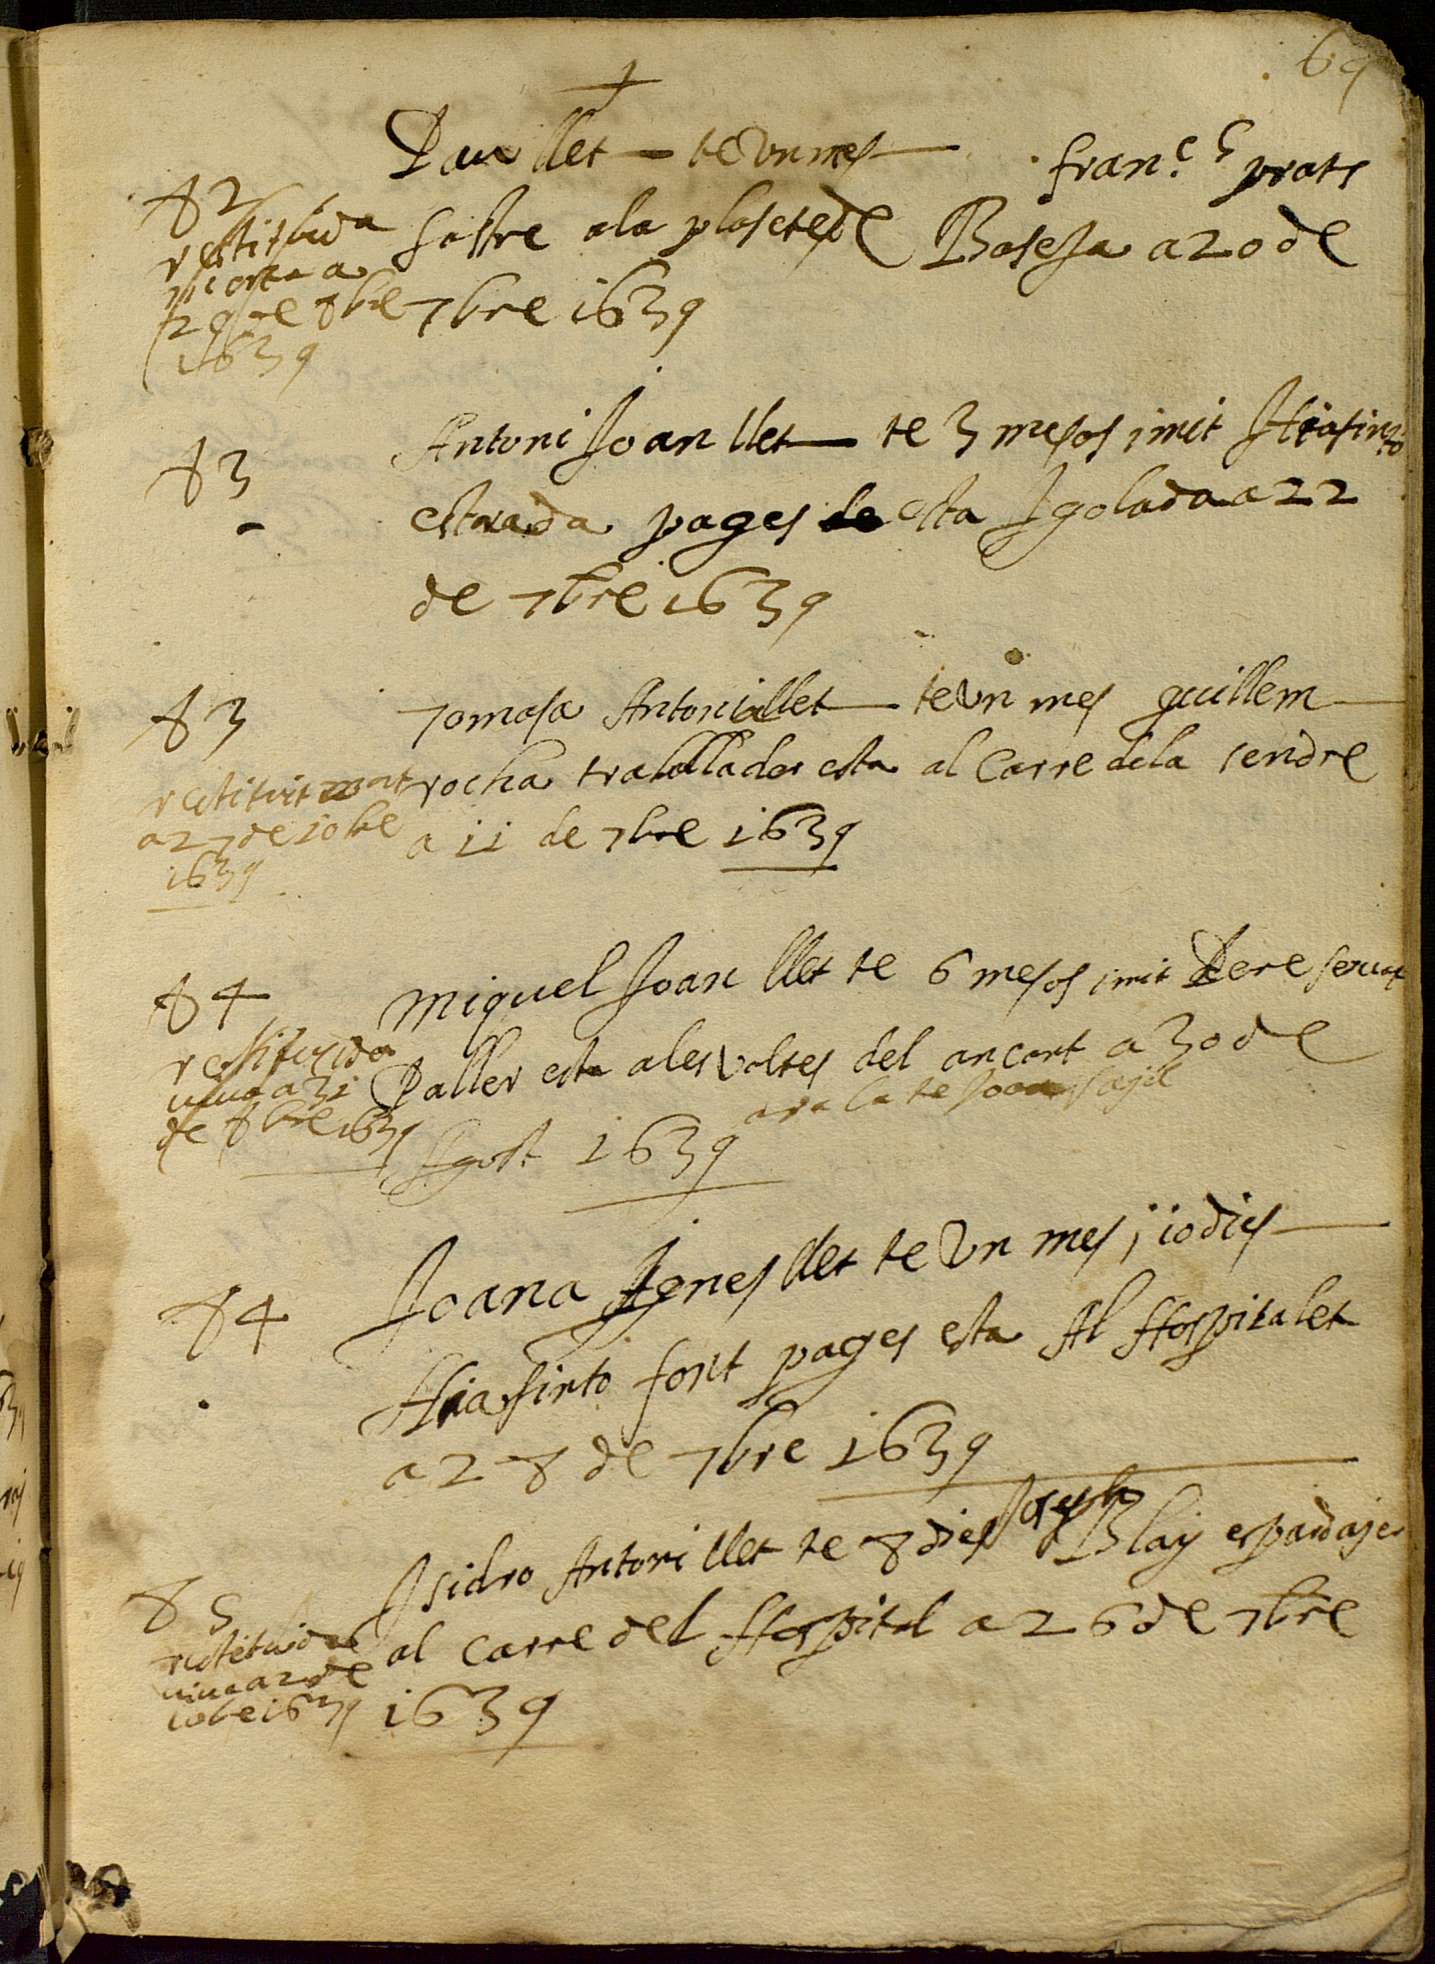 69
Pau llet te un mes franc.s prats
82
restituida
morta a
29 de 8bre
1639
sastre a la plaseta de Basea a 20 de
7bre 1639
83
Antoni Joan llet te 3 mesos i mit Hiasinto
estrada pages esta Igolada a 22
de 7bre 1639
83
restituit mort
a 27 de 10bre
1639
Tomasa Antoni llet te un mes guillem
rocha traballador esta al Carre de la sendre
a 11 de 7bre 1639
84
restituida
viva a 31
de 8bre 1639
Miquel Joan llet te 6 mesos i mit Pere servat
Paller esta a les voltes del ancant a 30 de
ara la te Joan
Agost 1639
84
Joana Agnes llet te un mes i 10 dies
Hiasinto font pages esta Al Hospitalet
a 28 de 7bre 1639
85
restituida
viva a 2 de
10bre 1639
Isidro Antoni llet te 8 dies Joseph Blay espadaje
al carre del Hospital a 26 de 7bre
1639